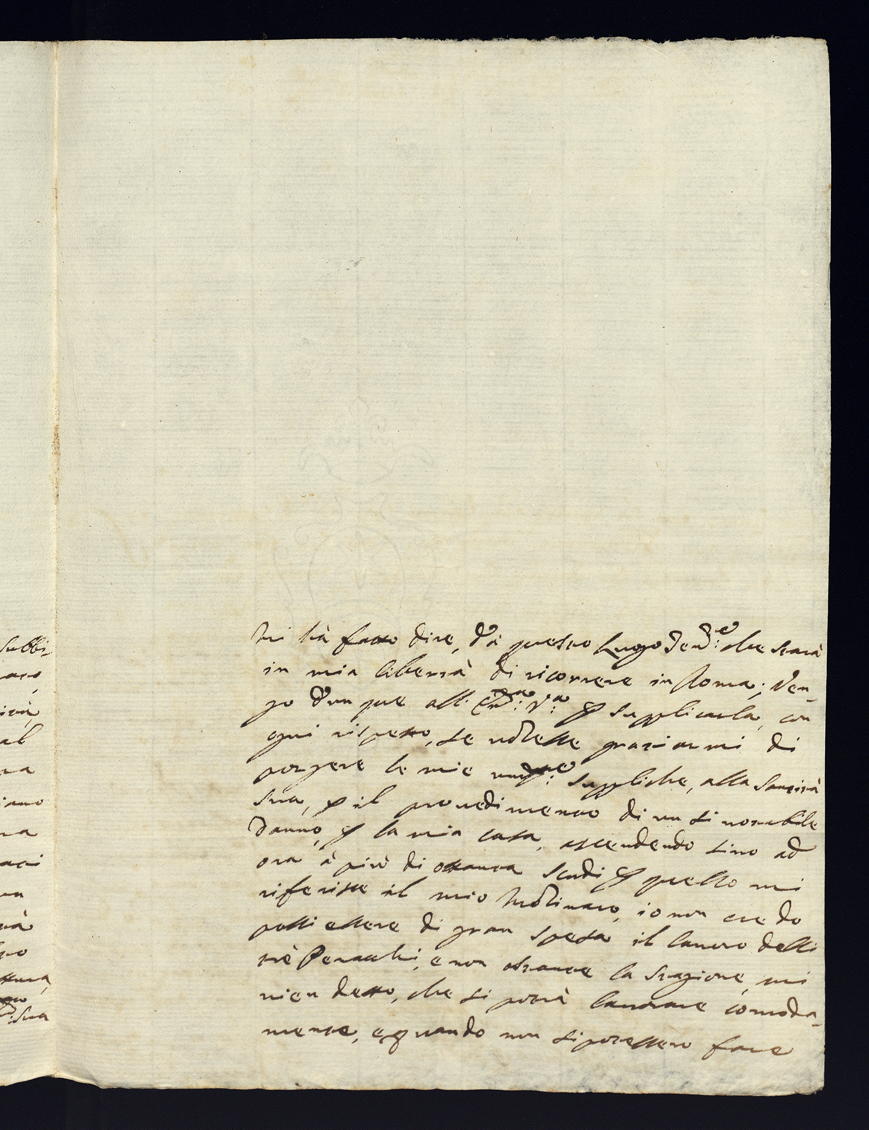 subbi-
al
na
iano
na
aci
Sua
mi hà fatto dire, dà questo Luogo che starà
in mia libertà di ricorrere in Roma; Ven-
go dun que all' Em:ᵃ V:ᵃ ꝑ supplicarla, con
ogni rispetto, se volesse graziar mi di
porgere le mie suppliche, alla Santità
Sua, ꝑ il provedimento di un si notabile
danno, ꝑ la mia casa, ascendendo sino ad
ora à più di ottanta Scudi ꝑ quello mi
riferisse il mio Molinaro, io non credo
possi essere di gran spesa il lavoro delli
trè e non ostante la stagione, mi
vien detto, che si potrà lavorare comoda-
mente, e quando non si potessero fare